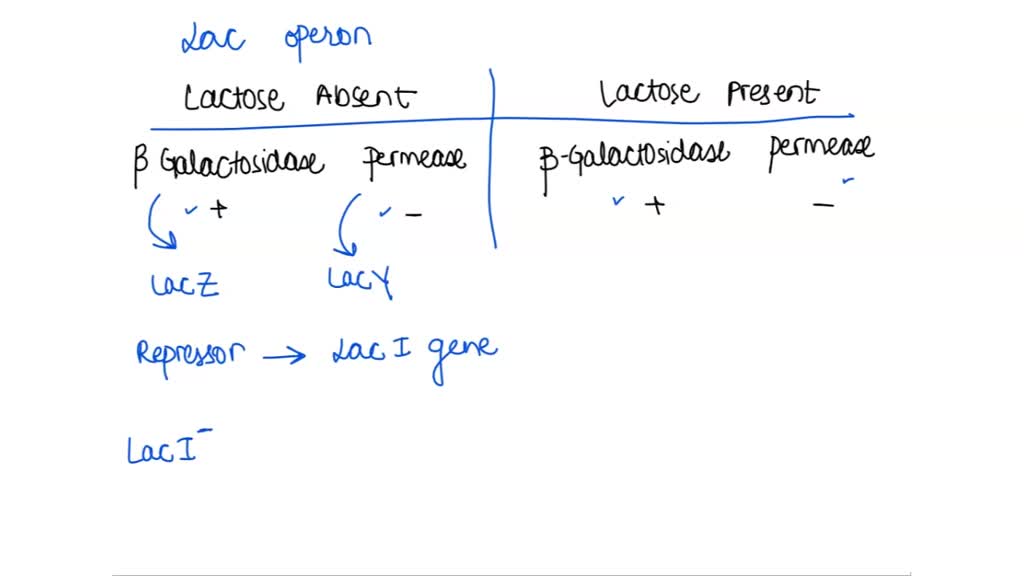 Lac operon
Lactose Absent Lactose Present
β Galactosidase Permease β-Galactosidase Permease
✓ + ✓ - ✓ + ✓ -
LacZ LacY
Repressor → Lac I gene
Lac I⁻